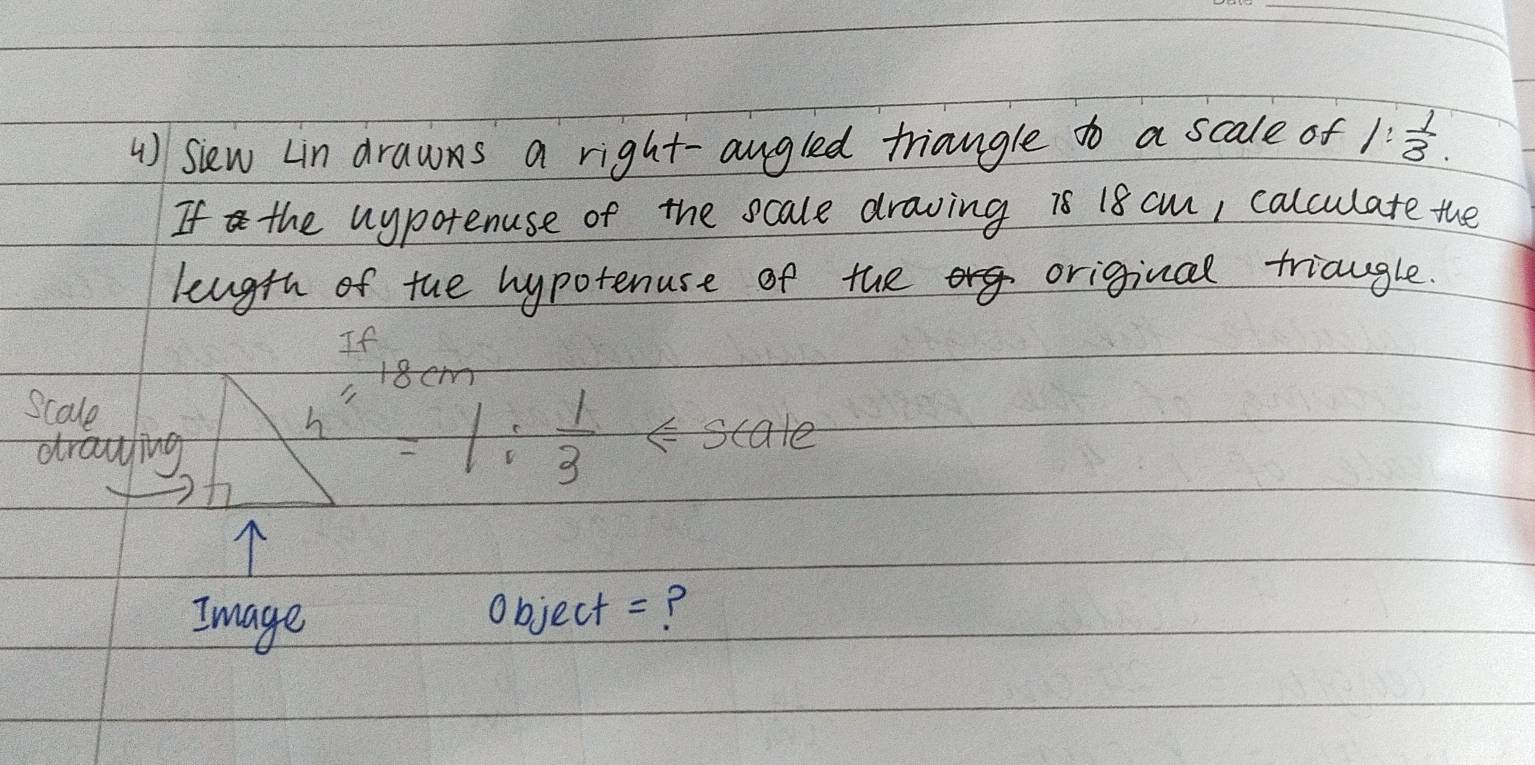 4) Siew Lin drawns a right-angled triangle to a scale of 1:1/3.
If the hypotenuse of the scale drawing is 18 cm, calculate the
length of the hypotenuse of the org original triangle.
If
18 cm
Scale
drawing
h
= 1 : 1/3 ⇐ scale
Image
Object = ?